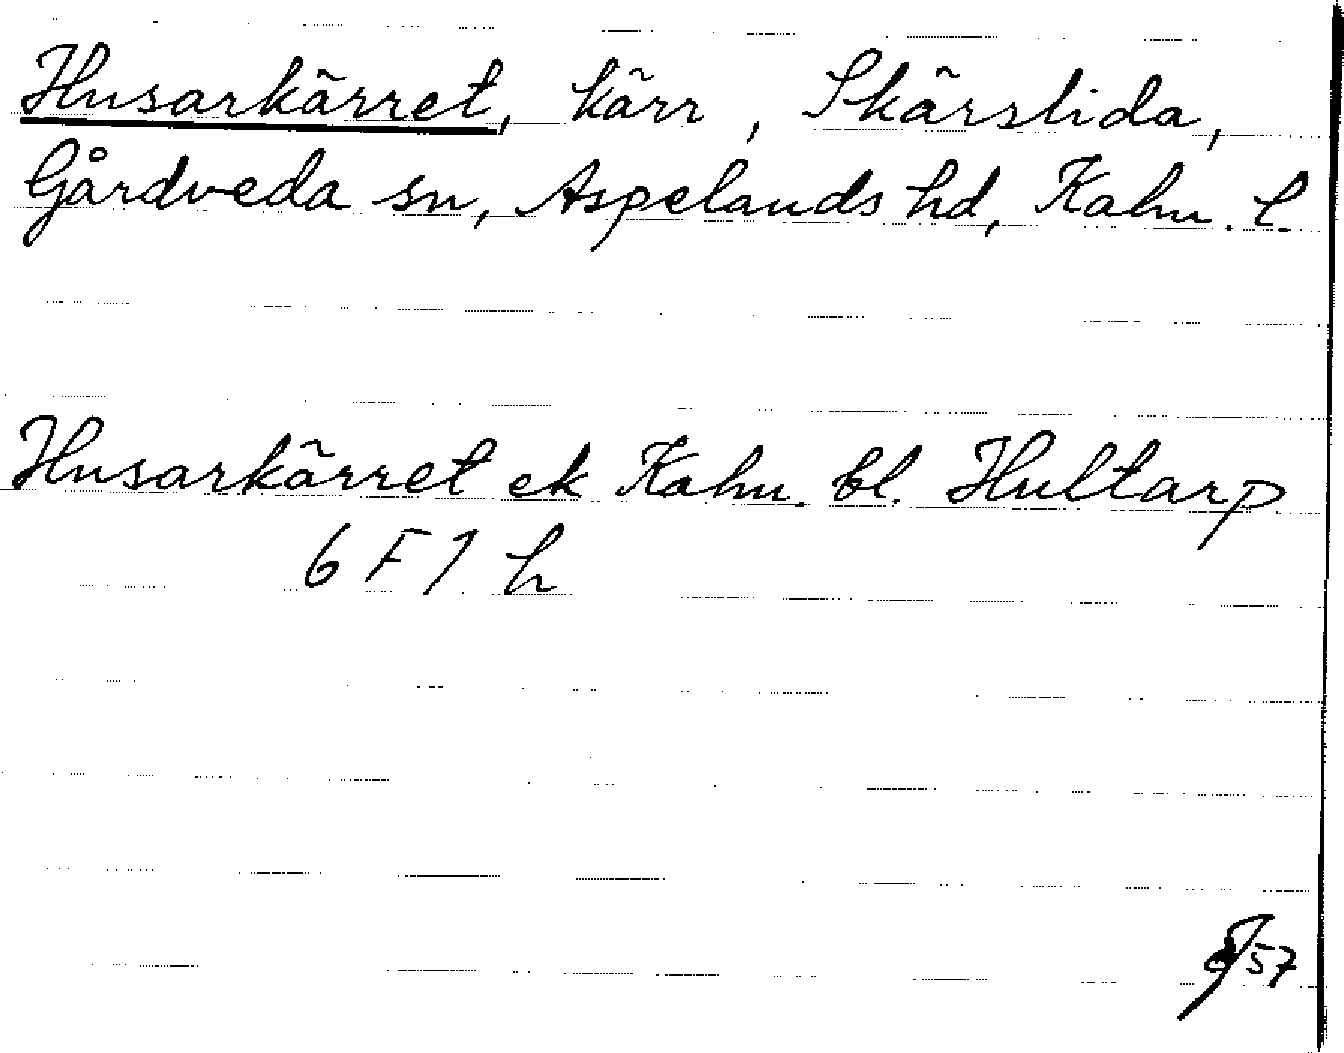 Husarkärret, kärr, Skärslida,
Gårdveda sn, Aspelands hd, Kalm. l.
Husarkärret ek Kalm. bl. Hultarp
6 F 7 h
57